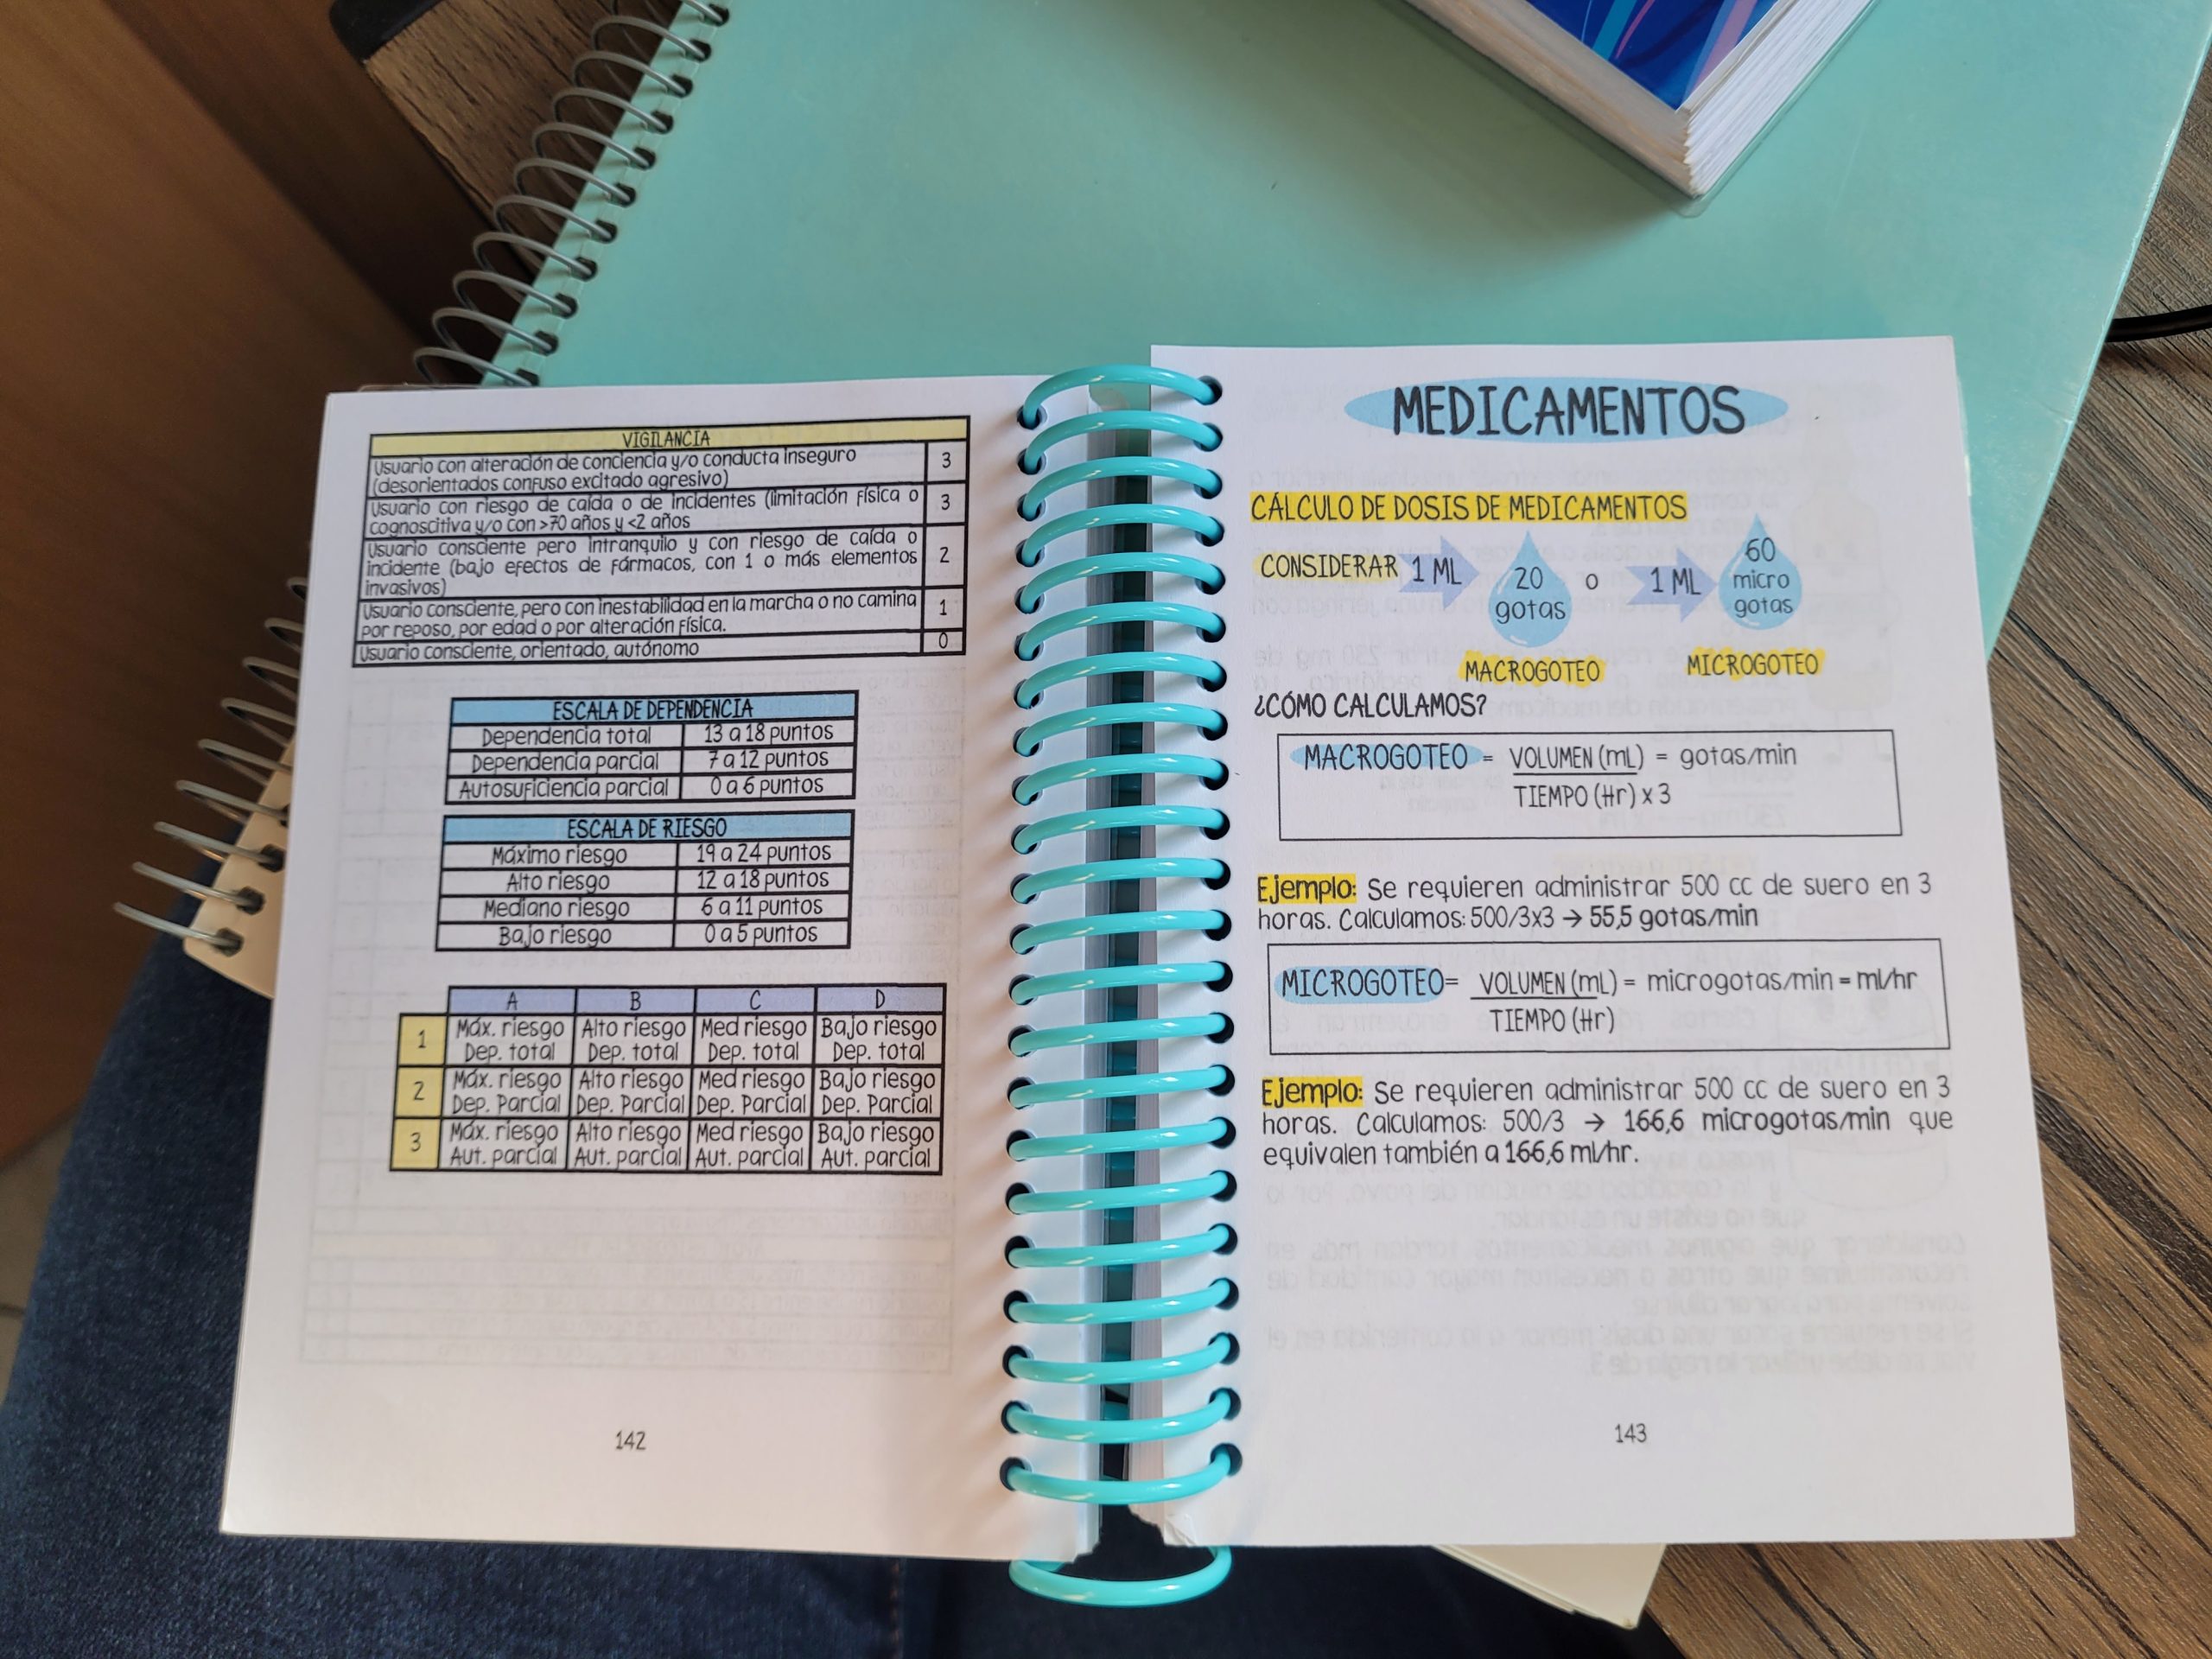 VIGILANCIA
Usuario con alteración de conciencia y/o conducta inseguro 3
(desorientados confuso excitado agresivo)
Usuario con riesgo de caída o de incidentes (limitación física o 3
cognoscitiva y/o con >70 años y <2 años
Usuario consciente pero intranquilo y con riesgo de caída o
incidente (bajo efectos de fármacos, con 1 o más elementos 2
invasivos)
Usuario consciente, pero con inestabilidad en la marcha o no camina 1
por reposo, por edad o por alteración física.
Usuario consciente, orientado, autónomo 0
ESCALA DE DEPENDENCIA
Dependencia total 13 a 18 puntos
Dependencia parcial 7 a 12 puntos
Autosuficiencia parcial 0 a 6 puntos
ESCALA DE RIESGO
Máximo riesgo 19 a 24 puntos
Alto riesgo 12 a 18 puntos
Mediano riesgo 6 a 11 puntos
Bajo riesgo 0 a 5 puntos
A B C D
1 Máx. riesgo Alto riesgo Med riesgo Bajo riesgo
Dep. total Dep. total Dep. total Dep. total
2 Máx. riesgo Alto riesgo Med riesgo Bajo riesgo
Dep. Parcial Dep. Parcial Dep. Parcial Dep. Parcial
3 Máx. riesgo Alto riesgo Med riesgo Bajo riesgo
Aut. parcial Aut. parcial Aut. parcial Aut. parcial
142
MEDICAMENTOS
CÁLCULO DE DOSIS DE MEDICAMENTOS
CONSIDERAR 1 ML 20 gotas o 1 ML 60 micro gotas
MACROGOTEO MICROGOTEO
¿CÓMO CALCULAMOS?
MACROGOTEO = VOLUMEN (mL) = gotas/min
TIEMPO (Hr) x 3
Ejemplo: Se requieren administrar 500 cc de suero en 3
horas. Calculamos: 500/3x3 → 55,5 gotas/min
MICROGOTEO= VOLUMEN (mL) = microgotas/min = ml/hr
TIEMPO (Hr)
Ejemplo: Se requieren administrar 500 cc de suero en 3
horas. Calculamos: 500/3 → 166,6 microgotas/min que
equivalen también a 166,6 ml/hr.
143